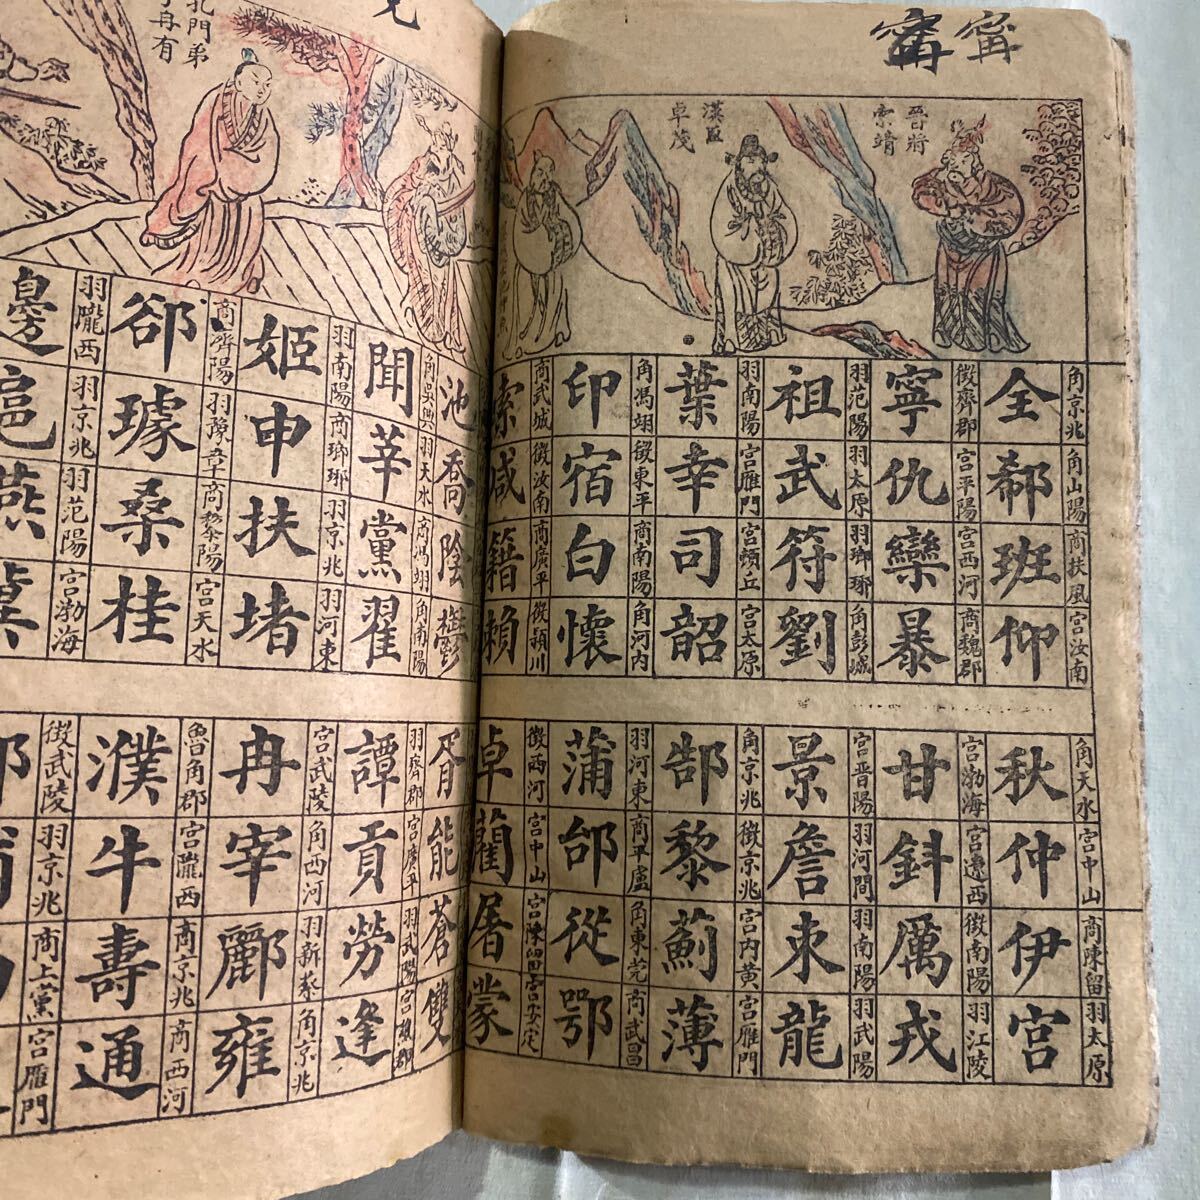 甯 甯
晉將
索靖
漢臣
卓茂
角京兆 角山陽 商扶風 宮汝南
全郗班仰
徵齊郡 宮平陽 宮西河 商魏郡
寧仇欒暴
羽范陽 羽太原 羽瑯琊 角彭城
祖武符劉
羽南陽 宮雁門 宮頓丘 宮太原
葉幸司韶
角馮翊 徵東平 商南陽 角河内
印宿白懷
商武城 徵汝南 商廣平 徵潁川
索咸籍賴
角天水 宮中山 商陳留 羽太原
秋仲伊宮
宮渤海 宮遼西 徵南陽 羽江陵
甘斜厲戎
宮晋陽 羽河間 羽南陽 羽武陽
景詹束龍
角京兆 徵京兆 宮内黄 宮雁門
郜黎薊薄
羽河東 商平盧 角東莞 商武昌
蒲邰從鄂
徵西河 宮中山 宮陳留
卓藺屠蒙
孔門弟
冉有
池喬陰鬱
角吳興 羽天水 商馮翊 角南陽
聞莘黨翟
羽南陽 商瑯琊 羽京兆 羽河東
姬申扶堵
商濟陽 羽豫章 商黎陽 宮天水
郤璩桑桂
羽隴西 羽京兆 羽范陽 宮渤海
邊扈燕冀
胥能蒼雙
羽齊郡 宮廣平 羽武陽
譚貢勞逄
宮武陵 角西河 羽新蔡 角京兆
冉宰酈雍
魯角郡 宮隴西 商京兆 商西河
濮牛壽通
徵武陵 羽京兆 商上黨 宮雁門